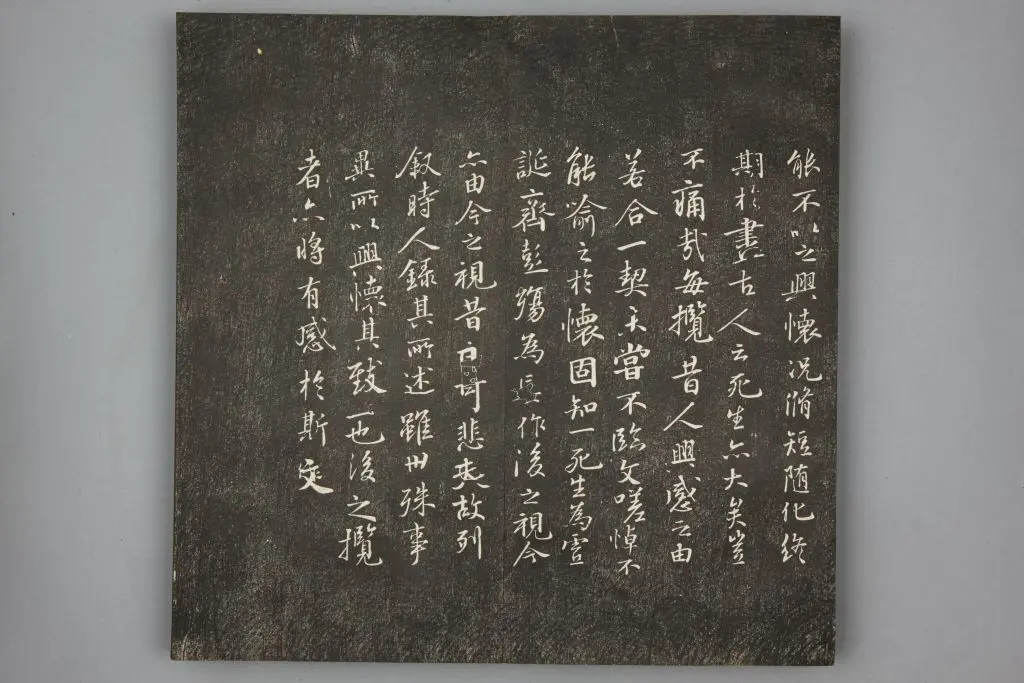 能不以之興懷况脩短随化終
期於盡古人云死生亦大矣豈
不痛哉每攬昔人興感之由
若合一契未嘗不臨文嗟悼不
能喻之於懷固知一死生為虛
誕齊彭殤為妄作後之視今
亦由今之視昔悲夫故列
叙時人錄其所述雖世殊事
異所以興懷其致一也後之攬
者亦將有感於斯文